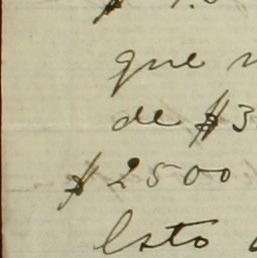 que
de $3
$2500
Esto